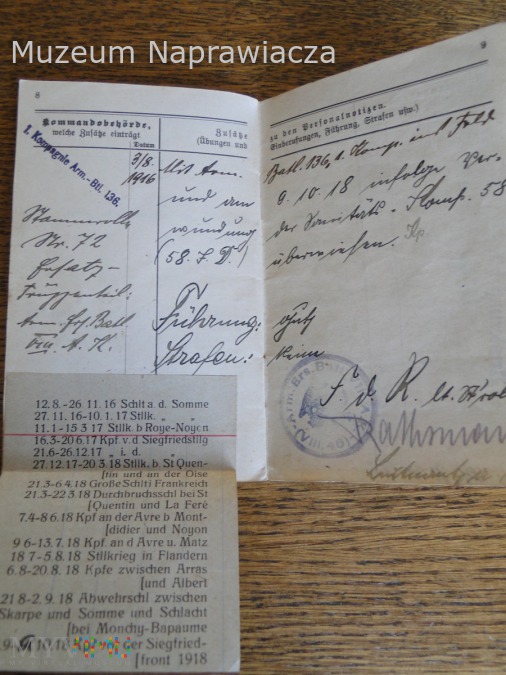 Muzeum Naprawiacza
8
Kommandobehörde,
welche Zusätze einträgt
Datum
Zusätze
(Übungen und
1. Kompagnie Arm.-Btl. 136.
3/8.
1916
Mit Arm.
und am
wundung
(58. I. D.)
Stammrolle
Nr. 72
Ersatz-
Truppenteil:
Arm. Ers. Batl
VIII. A. K.
Führung:
Strafen:
9
zu den Personalnotizen.
Einberufungen, Führung, Strafen usw.)
Batl. 136, 1. Komp. ins Feld
9. 10. 18 infolge Ver-
der Sanitäts-Komp. 58
überwiesen.
Gut
keine
F. d. R.
Arm. Ers. Batl.
12. 8.-26 11. 16 Schlt a. d. Somme
27. 11. 16-10. 1. 17 Stllk. „ „
11. 1-15 3. 17 Stllk. b Roye-Noyon
16.3-20 6.17 Kpf. v. d Siegfriedstlg
21.6-26.12.17 „ i. d „
27.12.17-20 3.18 Stllk. b. St Quen-
[tin und an der Oise
21.3-6.4.18 Große Schlt i Frankreich
21.3-22 3.18 Durchbruchsschl bei St
[Quentin und La Ferè
7.4-8 6.18 Kpf an der Avre b Mont-
[didier und Noyon
9 6-13.7.18 Kpf. an d Avre u. Matz
18 7-5.8.18 Stllkrieg in Flandern
6.8-20.8. 18 Kpfe zwischen Arras
[und Albert
21 8-2. 9. 18 Abwehrschl zwischen
Skarpe und Somme und Schlacht
[bei Monchy-Bapaume
der Siegfried-
[front 1918